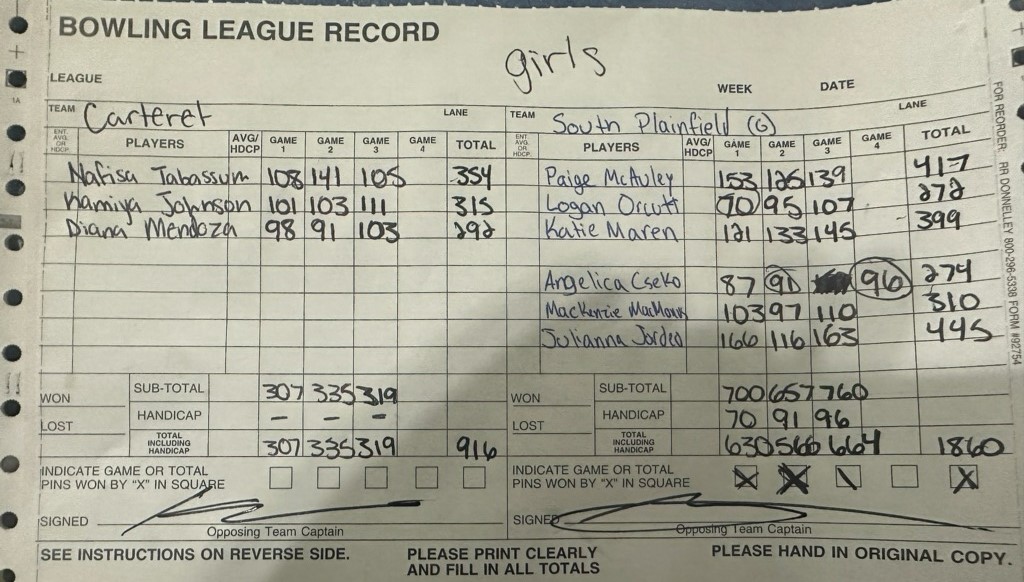 BOWLING LEAGUE RECORD
girls
LEAGUE WEEK DATE
TEAM Carteret LANE TEAM South Plainfield (G) LANE
ENT. AVG. OR HDCP. PLAYERS AVG/HDCP GAME 1 GAME 2 GAME 3 GAME 4 TOTAL ENT. AVG. OR HDCP. PLAYERS AVG/HDCP GAME 1 GAME 2 GAME 3 GAME 4 TOTAL
Nafisa Tabassum 108 141 105 354 Paige McAuley 153 125 139 417
Kamiya Johnson 101 103 111 315 Logan Orcutt 70 95 107 272
Diana Mendoza 98 91 103 292 Katie Maren 121 133 145 399
Angelica Cseko 87 91 96 274
Mackenzie 103 97 110 310
Julianna Jordao 166 116 163 445
WON SUB-TOTAL 307 335 319 WON SUB-TOTAL 700 657 760
LOST HANDICAP - - - LOST HANDICAP 70 91 96
TOTAL INCLUDING HANDICAP 307 335 319 916 TOTAL INCLUDING HANDICAP 630 566 664 1860
INDICATE GAME OR TOTAL INDICATE GAME OR TOTAL
PINS WON BY "X" IN SQUARE PINS WON BY "X" IN SQUARE X X \ X
SIGNED SIGNED
Opposing Team Captain Opposing Team Captain
SEE INSTRUCTIONS ON REVERSE SIDE. PLEASE PRINT CLEARLY PLEASE HAND IN ORIGINAL COPY.
AND FILL IN ALL TOTALS
FOR REORDER: RR DONNELLEY 800-296-5338 FORM #92754
1A